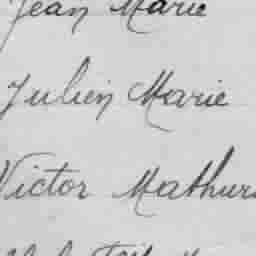 Jean Marie
Julien Marie
Victor Mathur